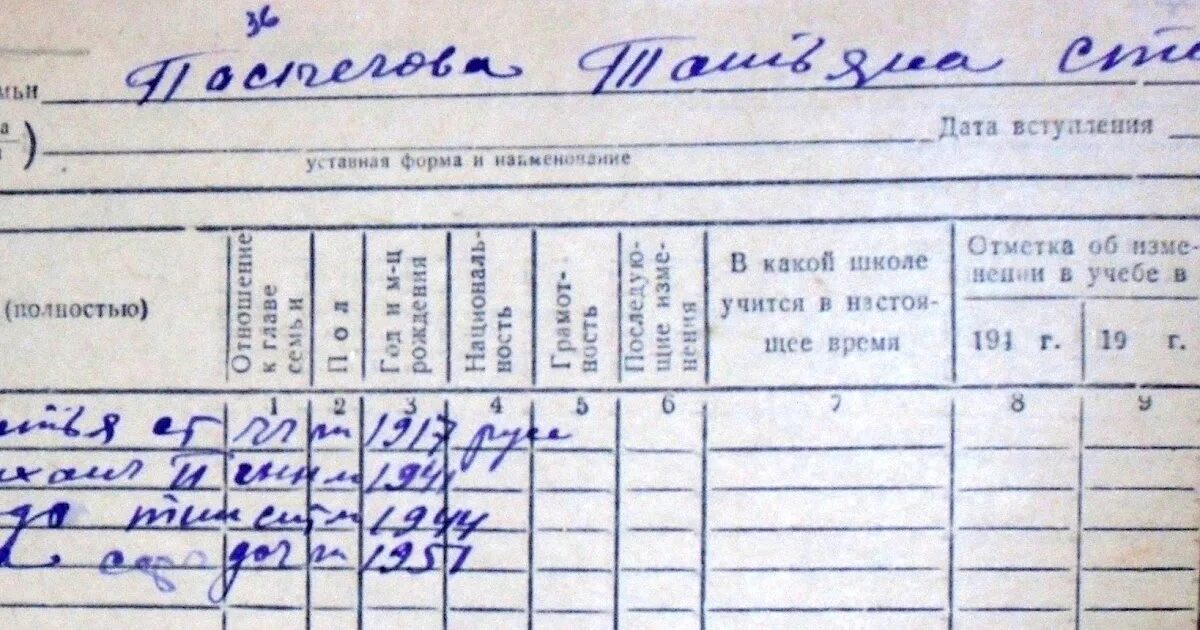 36
мьи Постегова Татьяна сте
а
) Дата вступления
уставная форма и наименование
(полностью) Отношение к главе семьи Пол Год и м-ц рождения Националь-ность Грамот-ность Последую-щие изме-нения В какой школе учится в настоя-щее время Отметка об изме-нении в учебе в
194 г. 19 г.
1 2 3 4 5 6 7 8 9
ст 1917 русс
П сын м 1941
1944
доч 1951